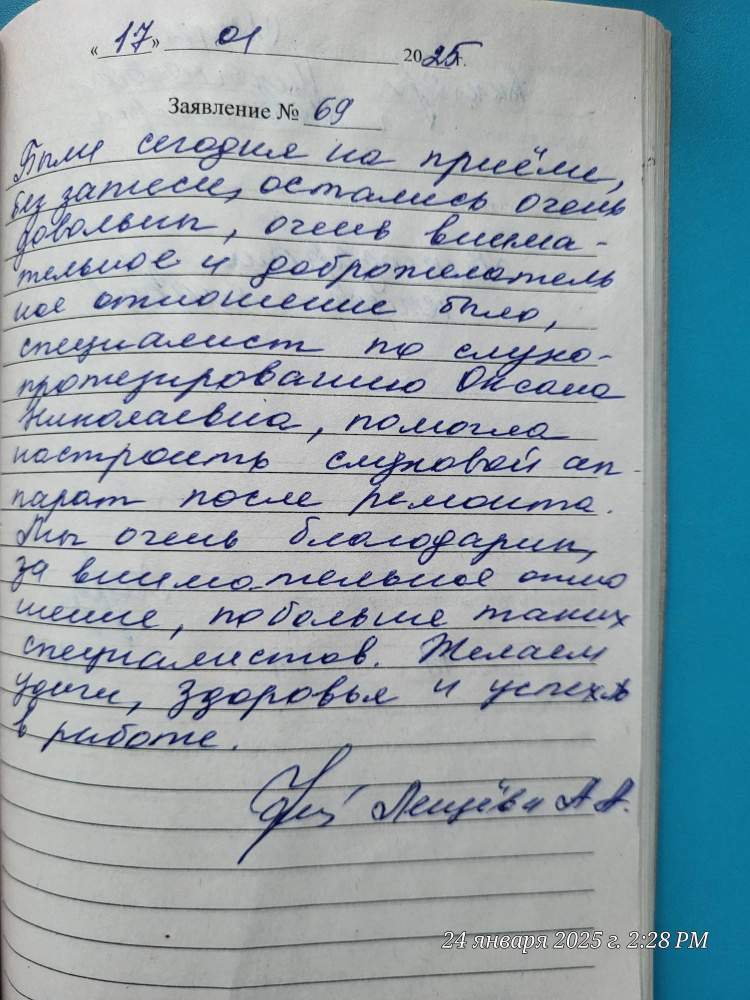 «17» 01 2025 г.
Заявление № 69
Были сегодня на приёме,
без записи, остались очень
довольны, очень внима-
тельное и доброжелатель
ное отношение было,
специалист по слухо-
протезированию Оксана
Николаевна, помогла
настроить слуховой ап-
парат после ремонта.
Мы очень благодарны,
за внимательное отно
шение, побольше таких
специалистов. Желаем
удачи, здоровья и успехов
в работе.
Лещёва А А.
24 января 2025 г. 2:28 PM